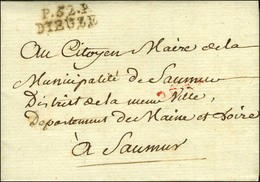 P.52.P
DIEUZE
Au Citoyen Maire de la
Municipalité de Saumur
District de la meme Ville,
Departement de Maine et Loire
à Saumur